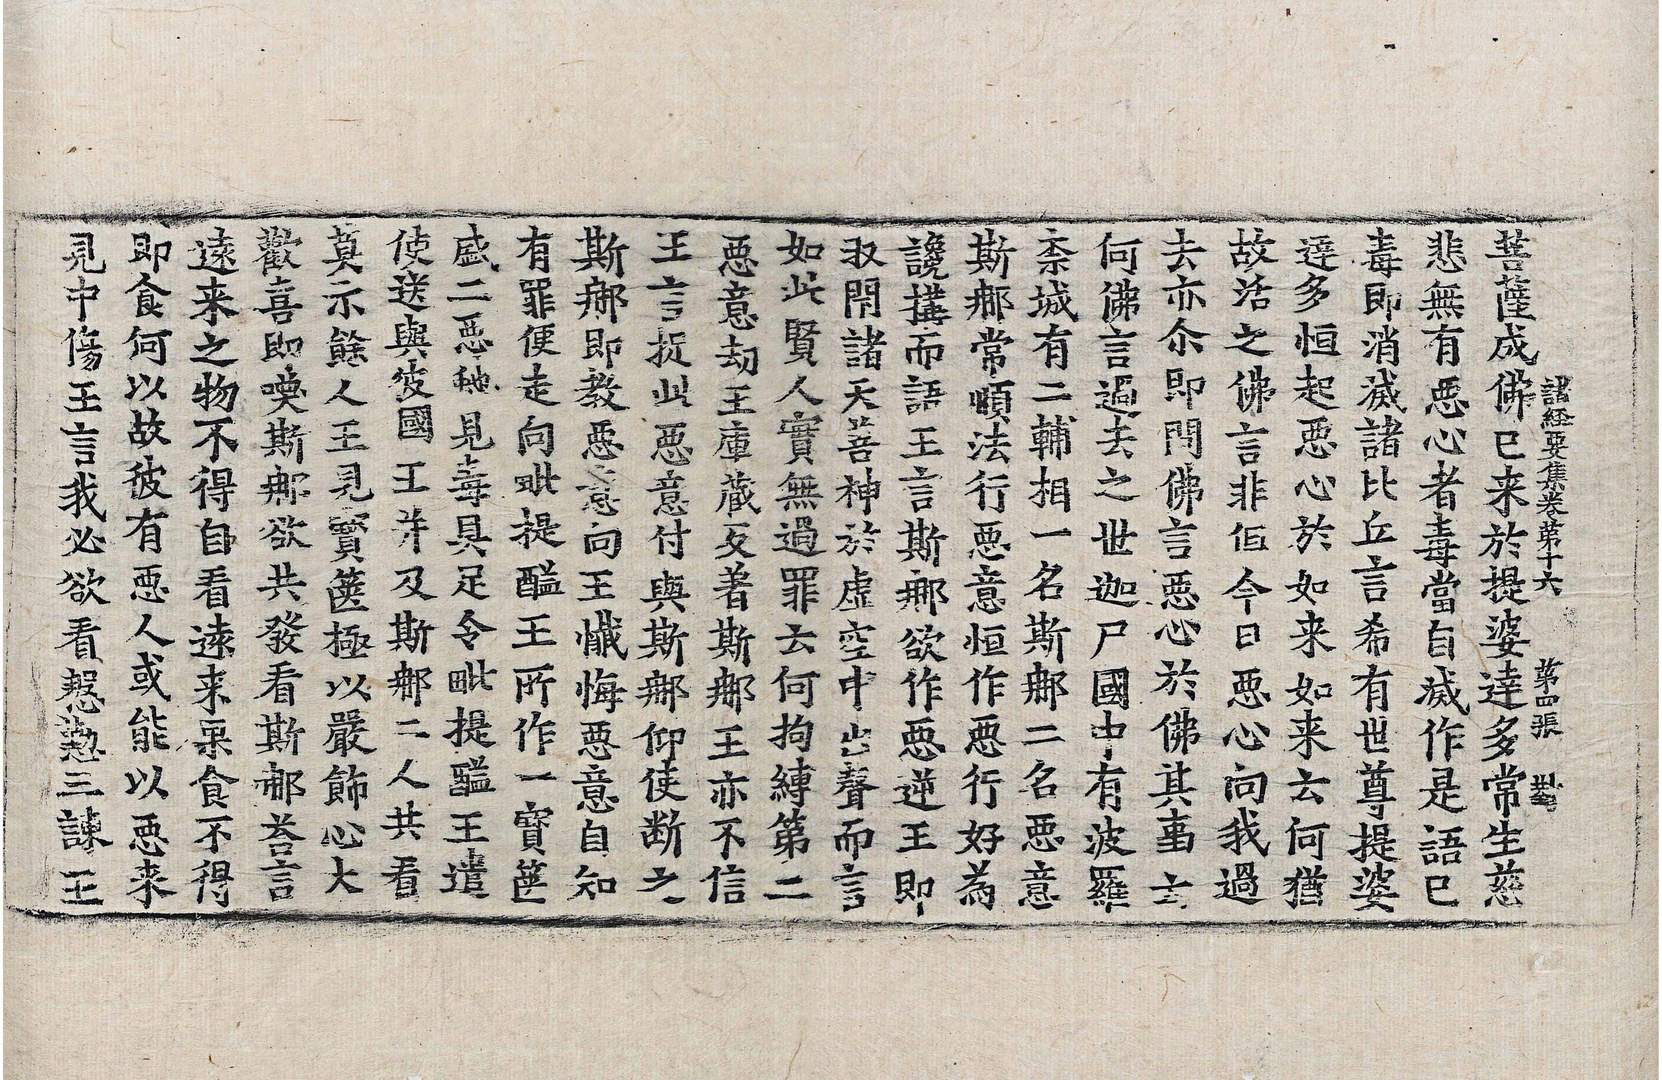 諸経要集卷第十六 第四張 對
菩薩成佛已来於提婆達多常生慈
悲無有惡心者毒當自滅作是語已
毒即消滅諸比丘言希有世尊提婆
達多恒起惡心於如来如来云何猶
故活之佛言非但今日惡心向我過
去亦尒即問佛言惡心於佛其事云
何佛言過去之世迦尸國中有波羅
柰城有二輔相一名斯那二名惡意
斯那常順法行惡意恒作惡行好為
讒搆而語王言斯那欲作惡逆王即
収閇諸天善神於虛空中出聲而言
如此賢人實無過罪云何拘縛第二
惡意劫王庫藏反著斯那王亦不信
王言捉此惡意付與斯那仰使断之
斯那即教惡意向王懺悔惡意自知
有罪便走向毗提醯王所作一寳篋
盛二惡虵見毒具足令毗提醯王遣
使送與彼國王并及斯那二人共看
莫示餘人王見寳篋極以嚴飾心大
歡喜即喚斯那欲共發看斯那荅言
遠来之物不得自看遠来果食不得
即食何以故彼有惡人或能以惡来
見中傷王言我必欲看慇懃三諫王